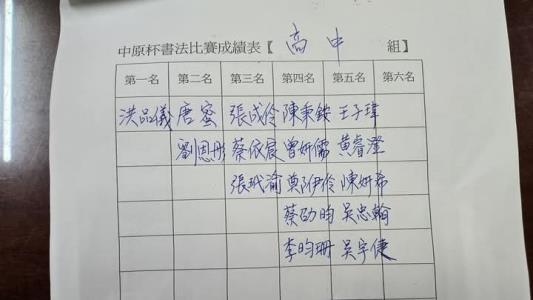 中原杯書法比賽成績表【高中 組】
第一名 第二名 第三名 第四名 第五名 第六名
洪品儀 唐蜜 張成伶 陳秉銨 王子瑋
劉恩彤 蔡依宸 曾妍儒 黃睿瀅
張玳渝 鄭伊伶 陳妍希
蔡劭昀 吳忠翰
李昀珊 吳宇倢